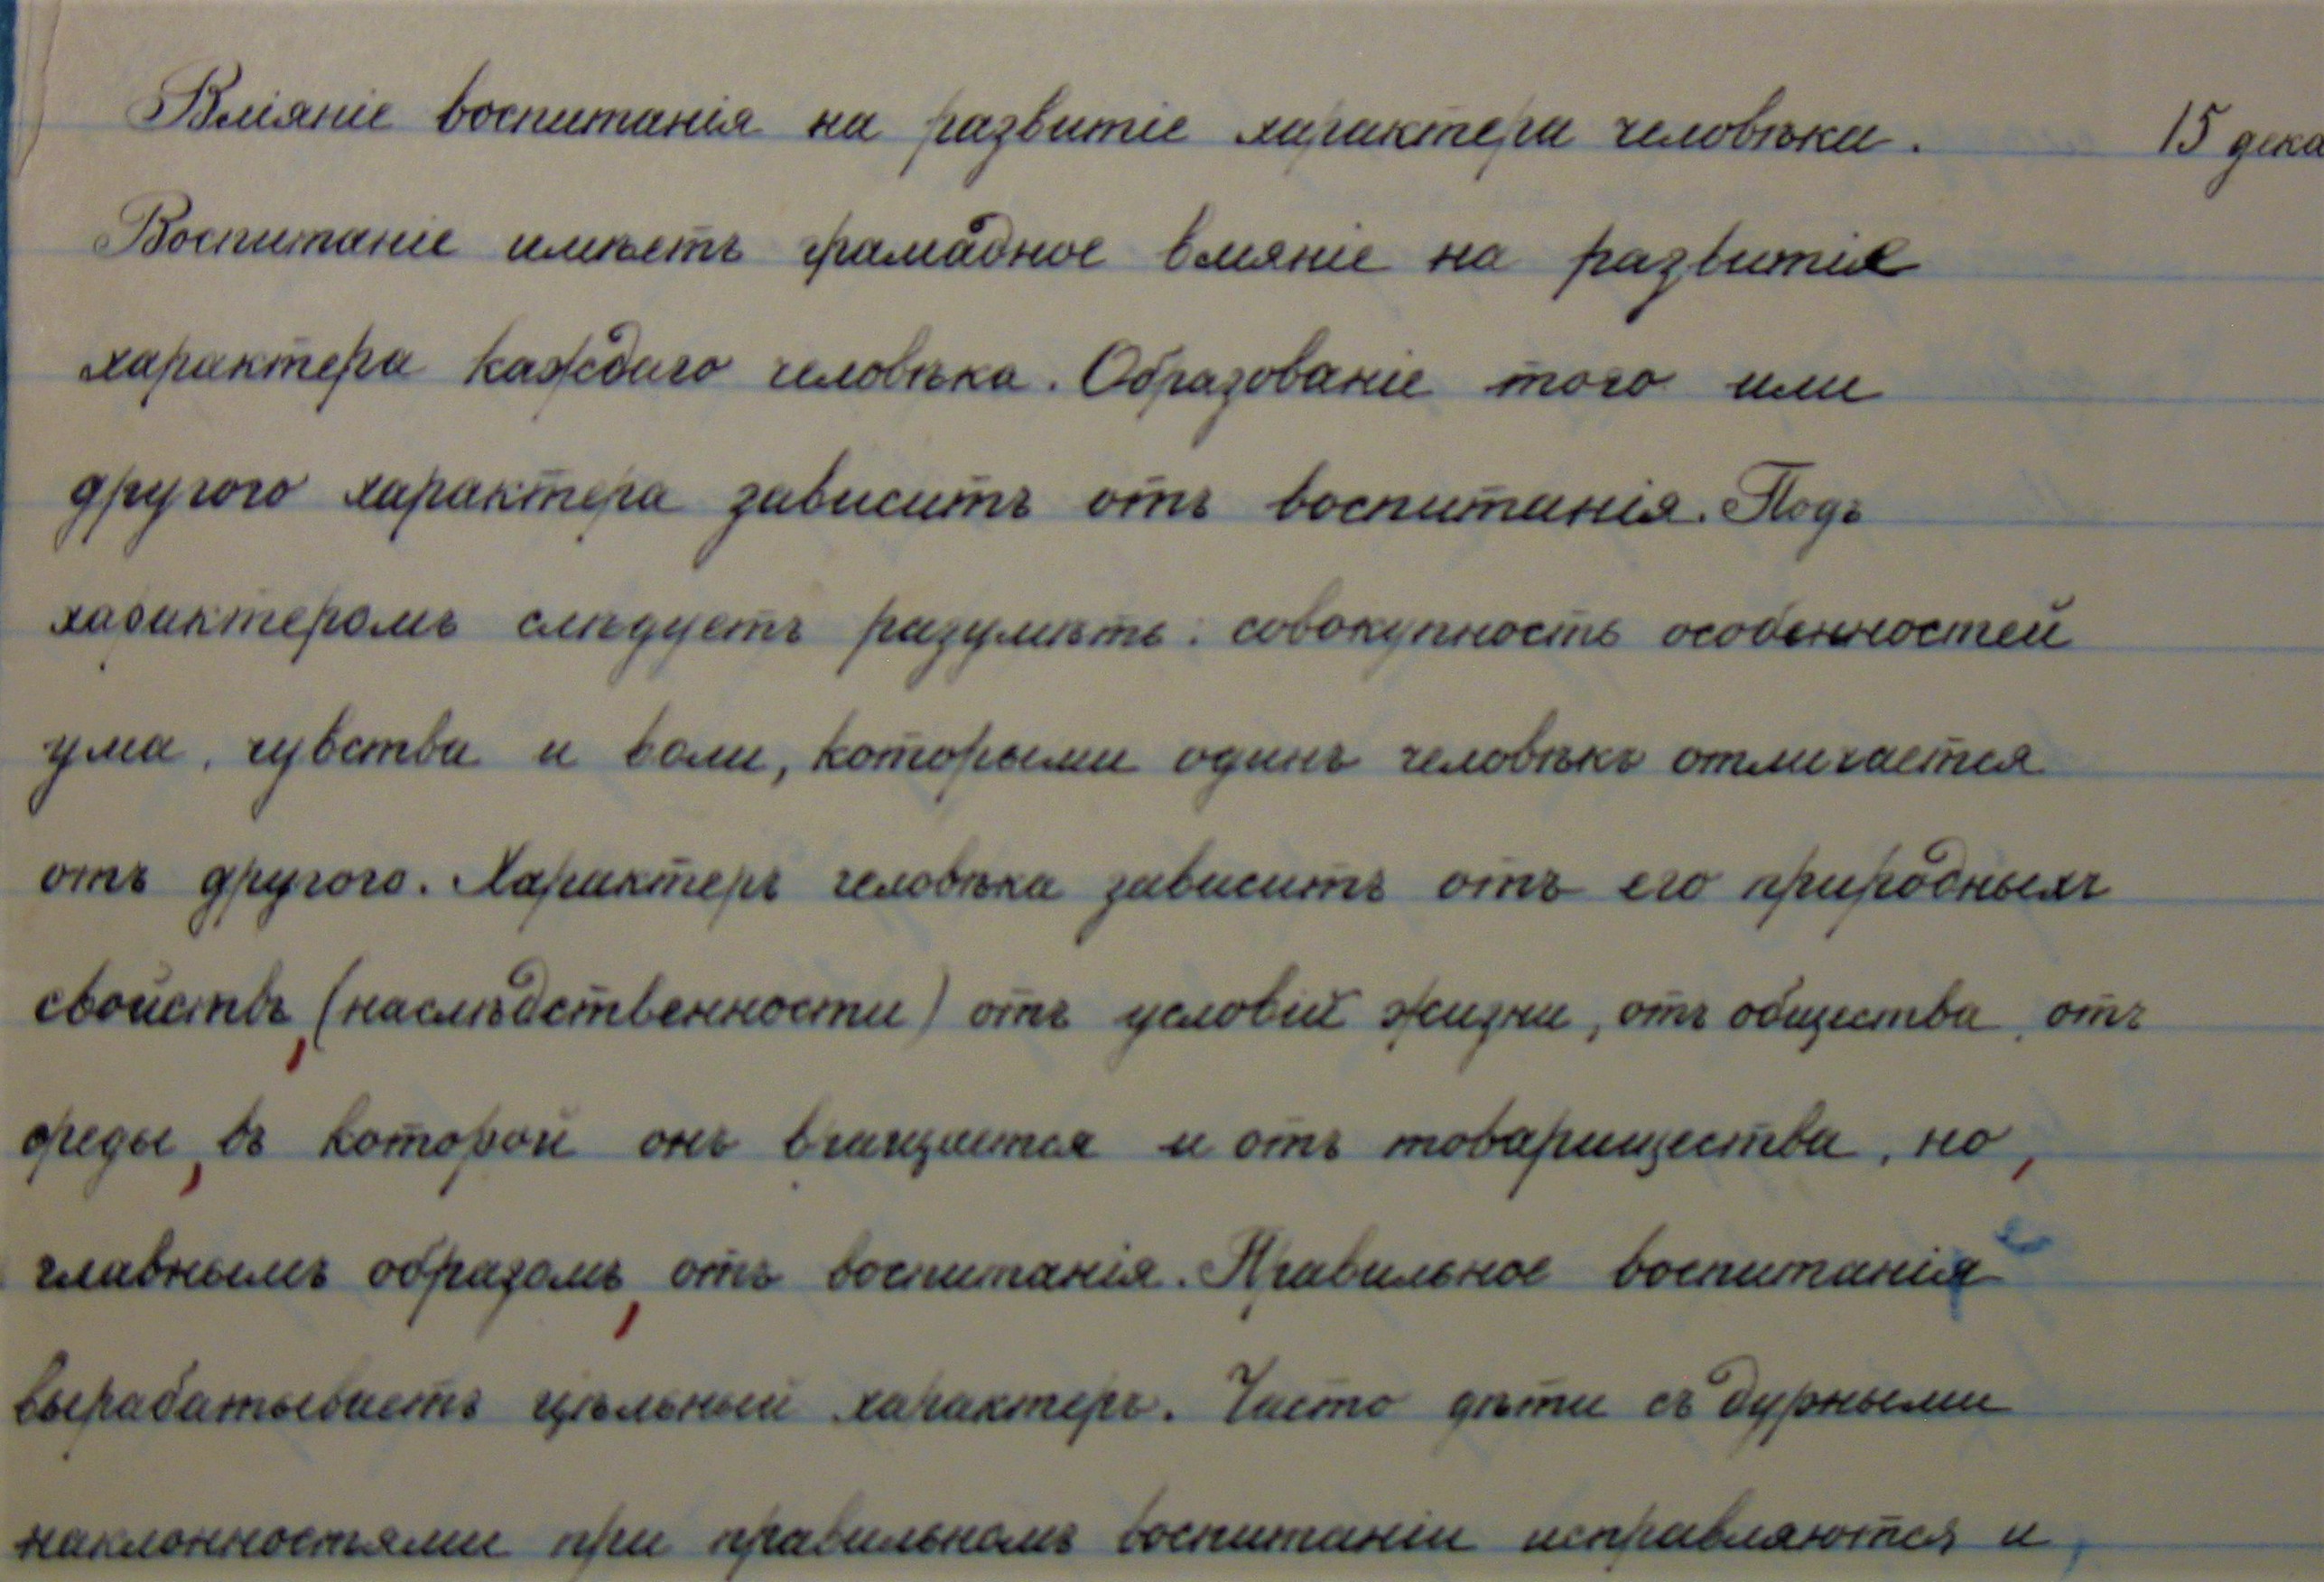 Вліяніе воспитанія на развитіе характера человѣка. 15 дека
Воспитаніе имѣетъ грамадное вліяніе на развитіе
характера каждаго человѣка. Образованіе того или
другого характера зависитъ отъ воспитанія. Подъ
характеромъ слѣдуетъ разумѣть: совокупность особенностей
ума, чувства и воли, которыми одинъ человѣкъ отличается
отъ другого. Характеръ человѣка зависитъ отъ его природныхъ
свойствъ, (наслѣдственности) отъ условій жизни, отъ общества, отъ
среды, въ которой онъ вращается и отъ товарищества, но,
главнымъ образомъ, отъ воспитанія. Правильное воспитанія е
вырабатываетъ цѣльный характеръ. Часто дѣти съ дурными
наклонностями при правильномъ воспитаніи исправляются и,